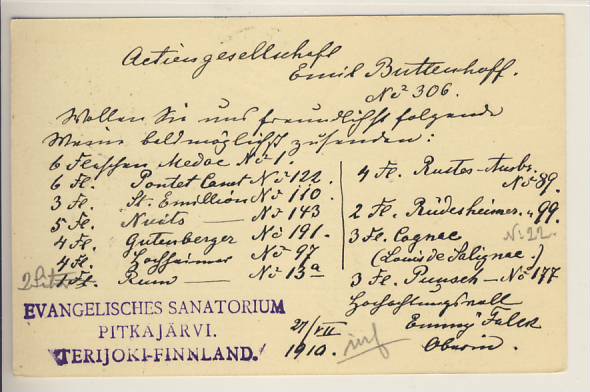 Actiengesellschaft
Emil Buttenhoff.
No 306.
Wollen Sie uns freundlichst folgende
Weine baldmöglichst zusenden:
6 Flaschen Medoc No 1
6 Fl. Pontet Canet No 122.
3 Fl. St. Emillion No 110.
5 Fl. Nuits — No 143
4 Fl. Gutenberger No 191.
4 Fl. Hochheimer No 97
2 Liter 1 Fl. Rum — No 13a
4 Fl. Rustes-Ausbr.
No 89.
2 Fl. Rüdesheimer " 99.
3 Fl. Cognac No 22.
(Louis de Salignac.)
3 Fl. Punsch — No 177
Hochachtungsvoll
Emmy Falck
Oberin.
27/VII
1910.
EVANGELISCHES SANATORIUM
PITKAJÄRVI.
TERIJOKI-FINNLAND.